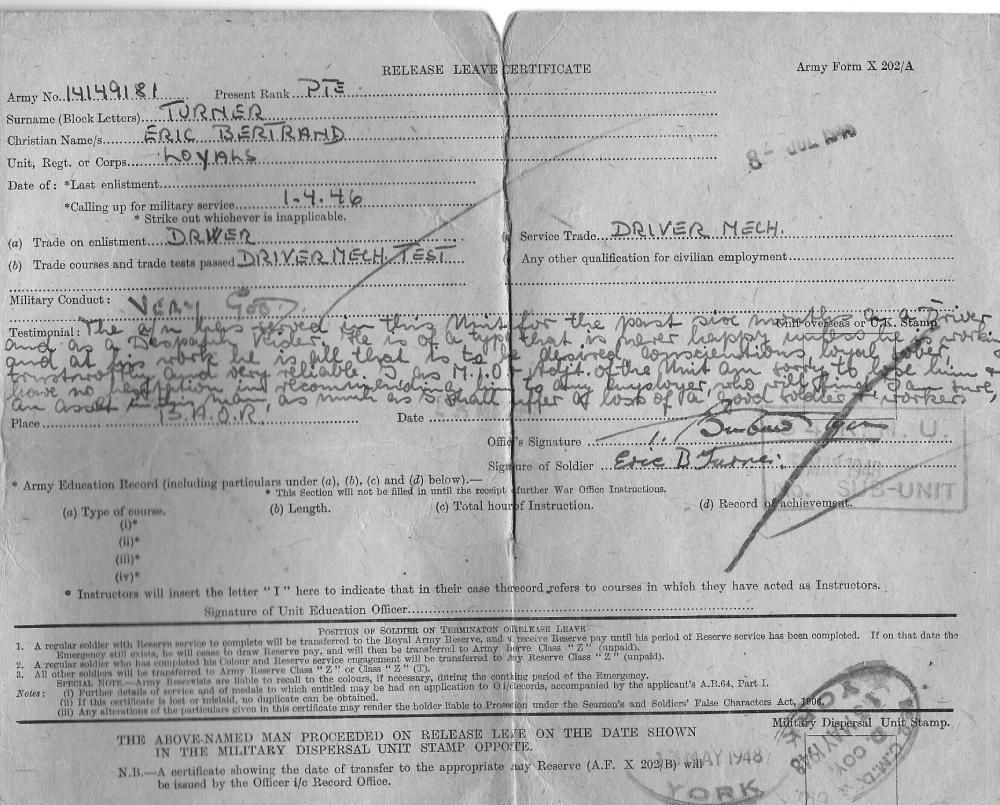 RELEASE LEAVE CERTIFICATE Army Form X 202/A
Army No. 14149181 Present Rank PTE
Surname (Block Letters) TURNER
Christian Name/s ERIC BERTRAND
Unit, Regt. or Corps LOYALS
8 - JUL
Date of : *Last enlistment
*Calling up for military service 1.4.46
* Strike out whichever is inapplicable.
(a) Trade on enlistment DRIVER Service Trade DRIVER MECH.
(b) Trade courses and trade tests passed DRIVER MECH. TEST Any other qualification for civilian employment
Military Conduct : VERY GOOD
Unit overseas or U.K. Stamp
Testimonial : The a/n has served in this Unit for the past six months as a Driver
and as a Despatch Rider. He is of a type that is never happy unless he is workin
and at his work he is all that is to be desired, conscientious, loyal, sober,
trustworthy and very reliable. I as M.T.O + Adjt. of the Unit am sorry to lose him +
have no hesitation in recommending him to any employer, who will find I am sure,
an asset in this man, as much as I shall suffer a loss of a good soldier + worker,
Place B.A.O.R. Date
Offic's Signature
Signature of Soldier Eric B Turner
H. U.
SUB-UNIT
* Army Education Record (including particulars under (a), (b), (c) and (d) below).—
* This Section will not be filled in until the receipt further War Office Instructions.
(a) Type of course. (b) Length. (c) Total hour of Instruction. (d) Record of achievement.
(i)*
(ii)*
(iii)*
(iv)*
* Instructors will insert the letter " I " here to indicate that in their case the record refers to courses in which they have acted as Instructors.
Signature of Unit Education Officer
POSITION OF SOLDIER ON TERMINATON O RELEASE LEAVE
1. A regular soldier with Reserve service to complete will be transferred to the Royal Army Reserve, and receive Reserve pay until his period of Reserve service has been completed. If on that date the
Emergency still exists, he will cease to draw Reserve pay, and will then be transferred to Army erve Class " Z " (unpaid).
2. A regular soldier who has completed his Colour and Reserve service engagement will be transferred to ny Reserve Class " Z " (unpaid).
3. All other soldiers will be transferred to Army Reserve Class " Z " or Class " Z " (T).
SPECIAL NOTE.—Army Reservists are liable to recall to the colours, if necessary, during the conting period of the Emergency.
Notes : (i) Further details of service and of medals to which entitled may be had on application to O i/c records, accompanied by the applicant's A.B.64, Part I.
(ii) If this certificate is lost or mislaid, no duplicate can be obtained.
(iii) Any alterations of the particulars given in this certificate may render the holder liable to Prosecion under the Seamen's and Soldiers' False Characters Act, 1906.
Military Dispersal Unit Stamp.
THE ABOVE-NAMED MAN PROCEEDED ON RELEASE LE E ON THE DATE SHOWN
IN THE MILITARY DISPERSAL UNIT STAMP OPPO TE.
N.B.—A certificate showing the date of transfer to the appropriate my Reserve (A.F. X 202/B) will
be issued by the Officer i/c Record Office.
MAY 1948
YORK
MAY 1948